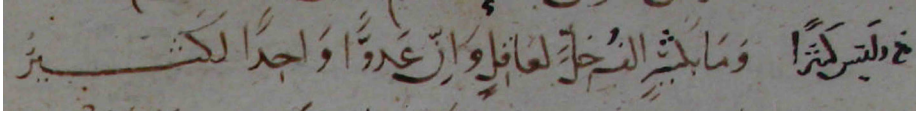 خ وليس كثيرًا وَمَا بكَثيرٍ الفُ خلٍّ لعَاقلٍ وَانّ عَدوًّا وَاحِدًا لكَثيرُ